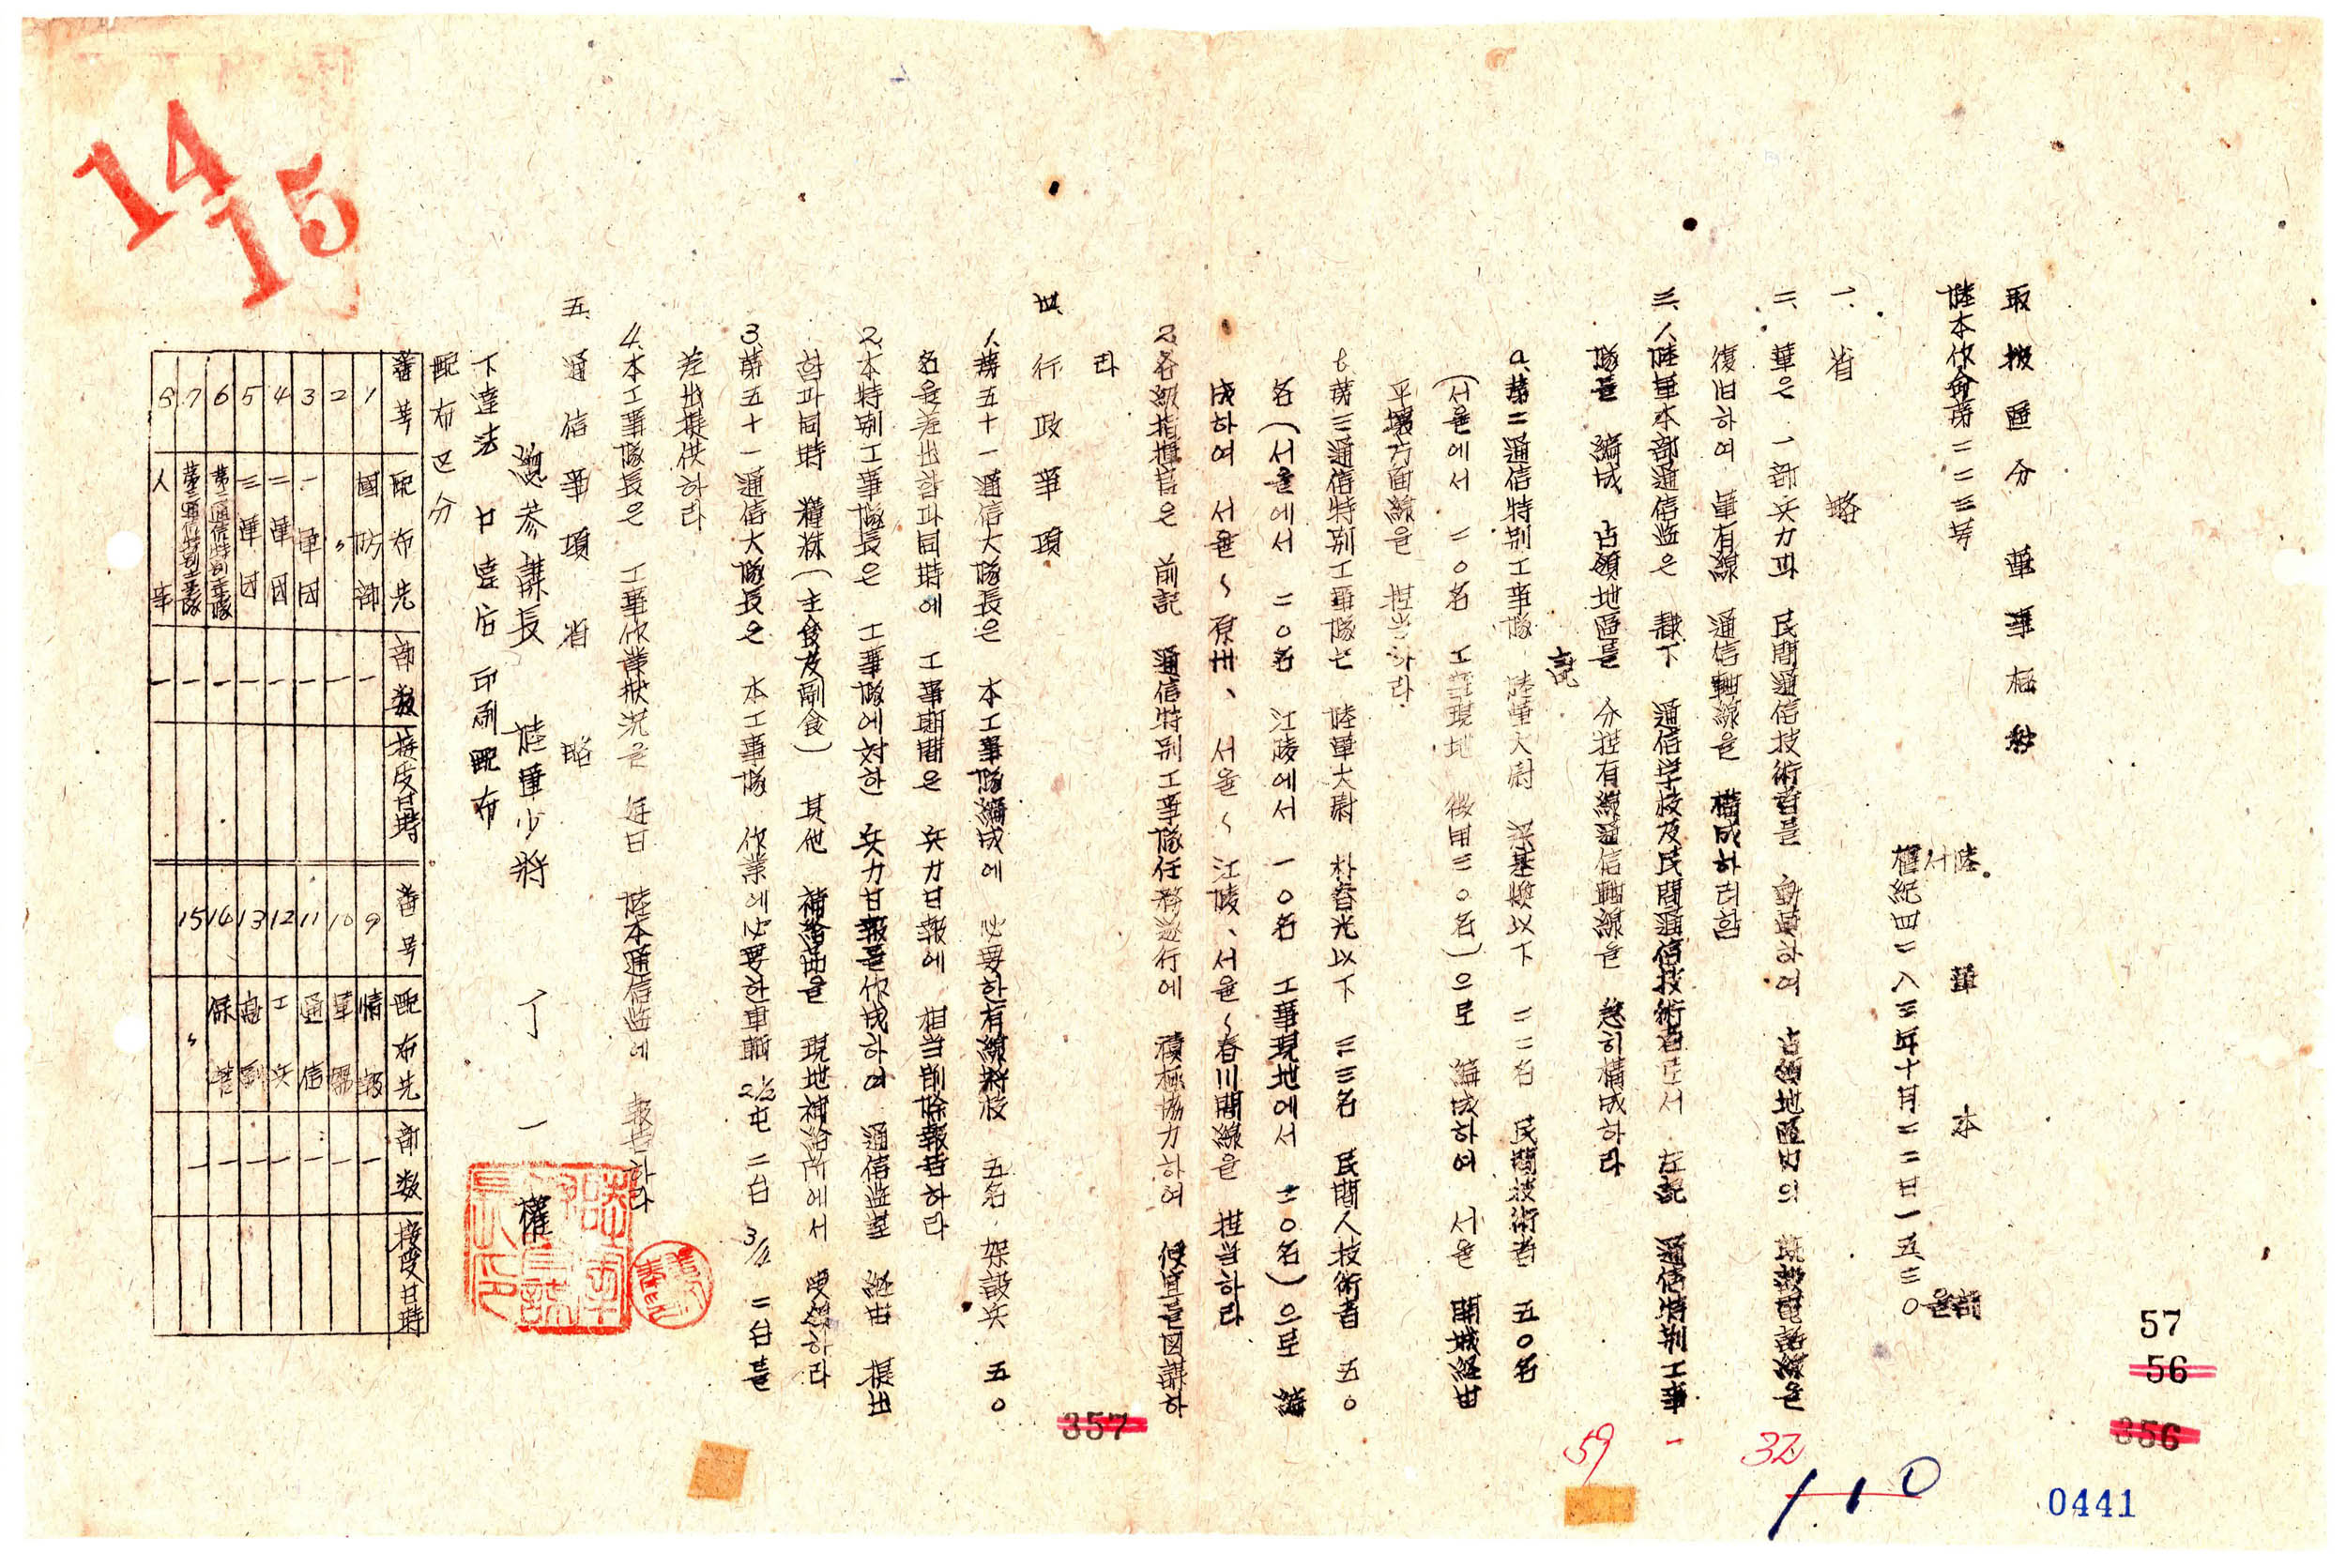 取扱區分 軍事極秘
陸本作命第二二三号
陸軍本部
서울
檀紀四二八三年十月二二日一五三〇
一、省略
二、軍은 一部兵力과 民間通信技術者를 動員하여 占領地區內의 既設電話線을
復旧하여 軍有線 通信軸線을 構成하려함
三、1.陸軍本部通信監은 隷下 通信学校及民間通信技術者로서 左記 通信特別工事
隊를 編成 占領地區를 分担有線通信軸線을 急히構成하라
記
a.第二通信特別工事隊 陸軍大尉 梁基煥以下 二二名 民間技術者 五〇名
(서울에서 二〇名 工事現地 徴用三〇名)으로 編成하여 서울 開城経由
平壤方面線을 担当하라.
b.第三通信特別工事隊는 陸軍大尉 朴春光以下 二三名 民間人技術者 五〇
名(서울에서 二〇名 江陵에서 一〇名 工事現地에서 二〇名)으로 編
成하여 서울~原州、서울~江陵、서울~春川間線을 担当하라
2.各級指揮官은 前記 通信特別工事隊任務遂行에 積極協力하여 便宜를図謀하
라
四、行政事項
1.第五十一通信大隊長은 本工事隊編成에 必要한有線將校 五名、架設兵 五〇
名을差出함과同時에 工事期間은 兵力日報에 相当削除報告하라
2.本特別工事隊長은 工事隊에対한 兵力日報를作成하여 通信監室 経由 提出
함과同時 糧秣(主食及副食) 其他 補給品을 現地補給所에서 受領하라
3.第五十一通信大隊長은 本工事隊 作業에必要한車輌 2½屯 二台 3/4 二台를
差出提供하라
4.本工事隊長은 工事作業狀況을 每日 陸本通信監에 報告하라
五、通信事項 省略
總参謀長 陸軍少將 丁一權
下達法 口達后 印刷配布
配布区分
番号 配布先 部数 接受日時 番号 配布先 部数 接受日時
1 國防部 一 9 情報 一
2 〃 一 10 軍需 一
3 一軍団 一 11 通信 一
4 二軍団 一 12 工兵 一
5 三軍団 一 13 高副 一
6 第二通信特別工事隊 一 14 保管 一
7 第三通信特別工事隊 一 15 〃 一
8 人事 一
14
15
57
56
356
357
59
37
110
0441